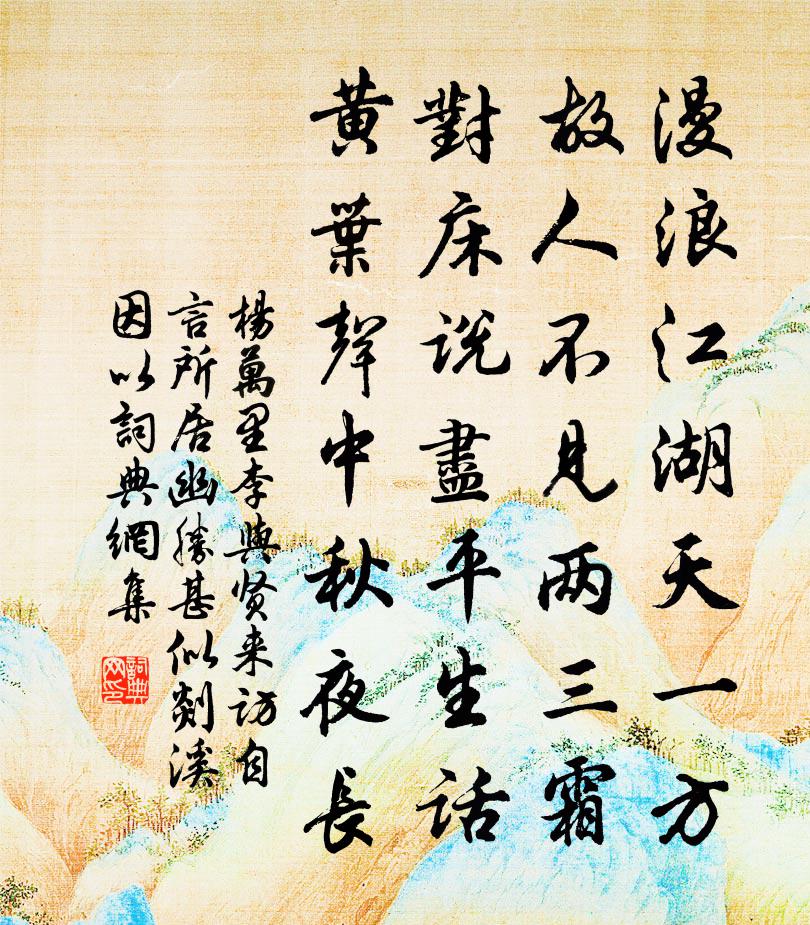 漫浪江湖天一方
故人不见两三霜
對床说盡平生话
黄葉聲中秋夜長
楊萬里李與贤来访自
言所居幽勝甚似剡溪
因以詞典網集
詞典網印